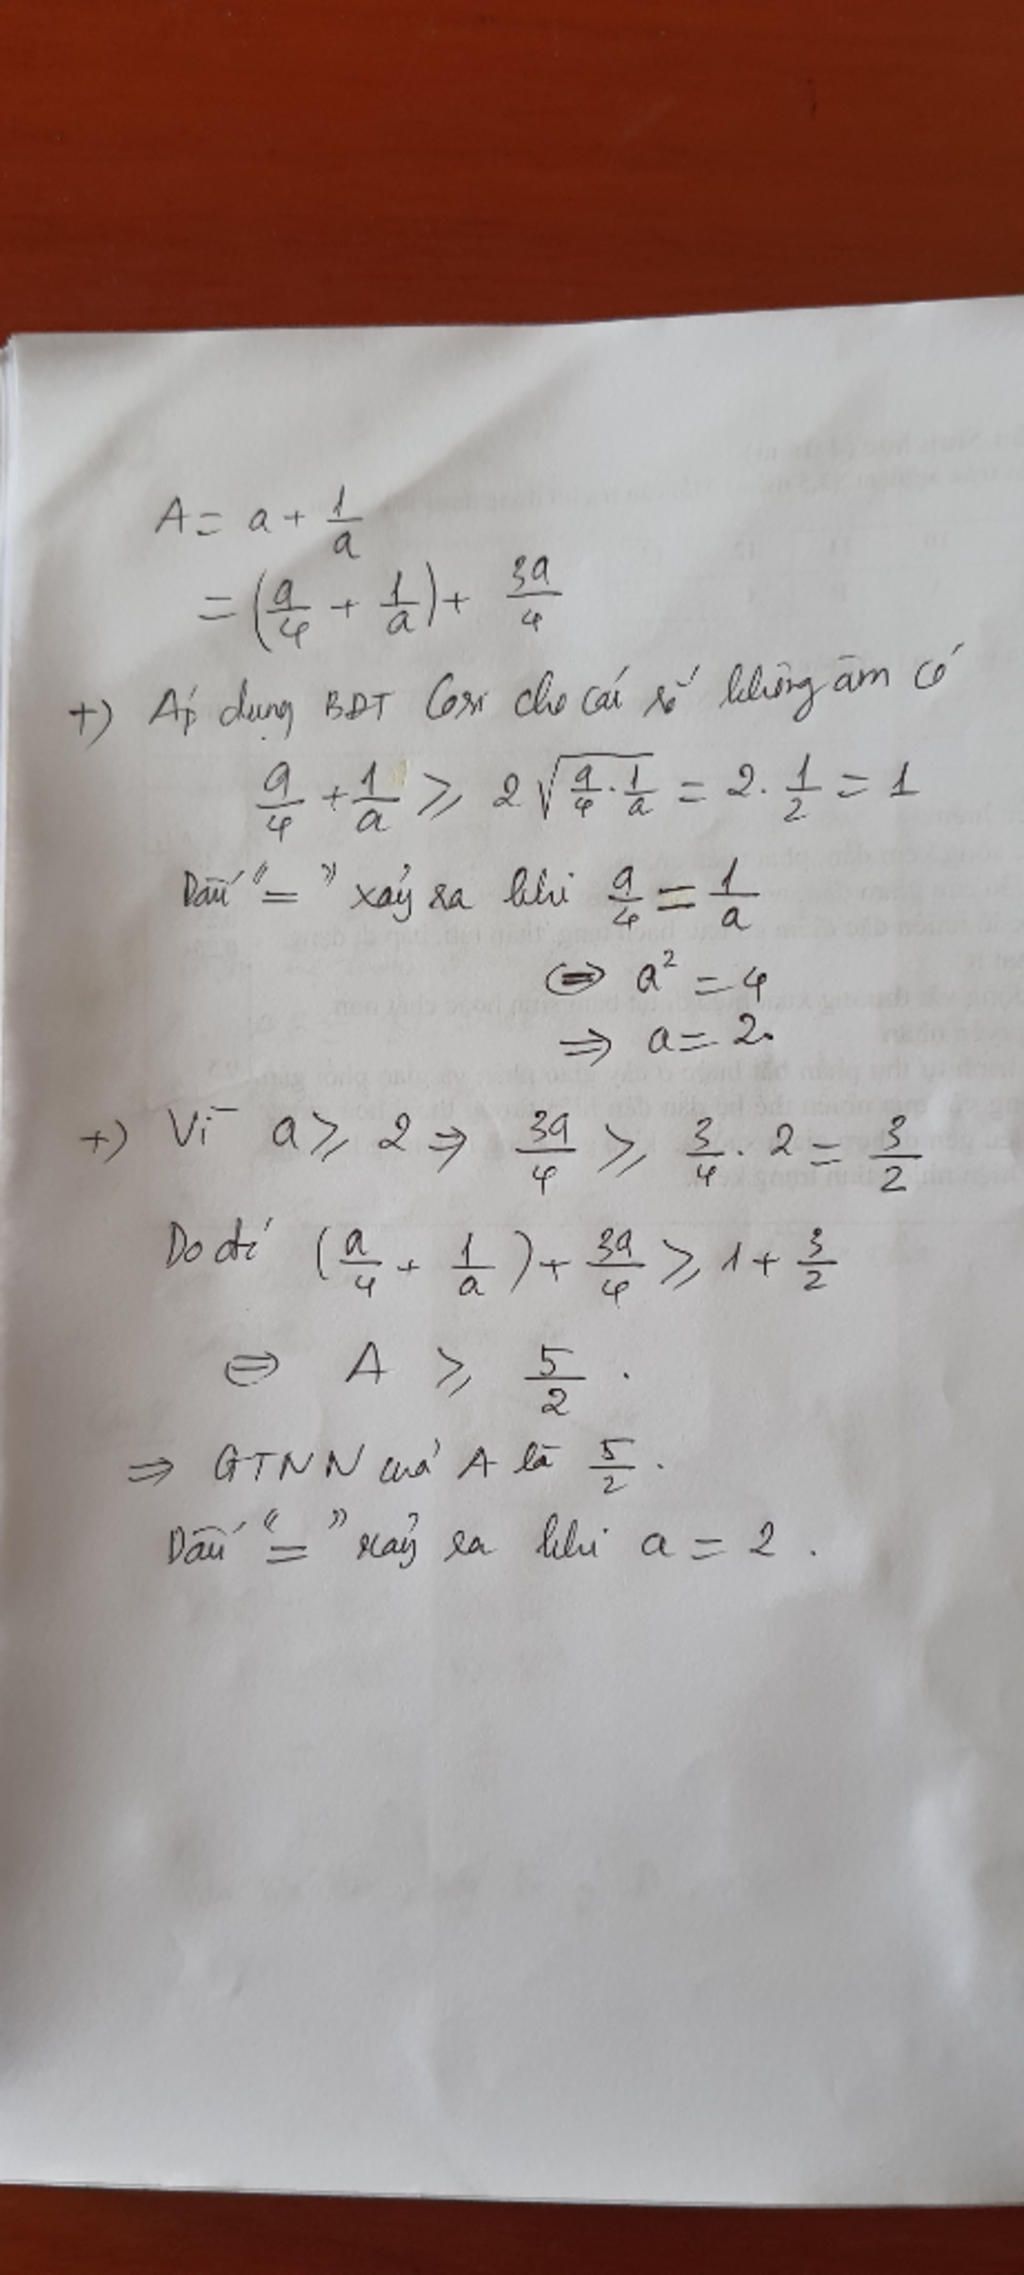 A = a + 1/a
= (a/4 + 1/a) + 3a/4
+) Áp dụng BĐT Cosi cho các số không âm có
a/4 + 1/a ⩾ 2√(a/4 · 1/a) = 2. 1/2 = 1
Dấu "=" xảy ra khi a/4 = 1/a
⇔ a² = 4
⇒ a = 2.
+) Vì a ⩾ 2 ⇒ 3a/4 ⩾ 3/4 . 2 = 3/2
Do đó (a/4 + 1/a) + 3a/4 ⩾ 1 + 3/2
⇔ A ⩾ 5/2 .
⇒ GTNN của A là 5/2 .
Dấu "=" xảy ra khi a = 2 .